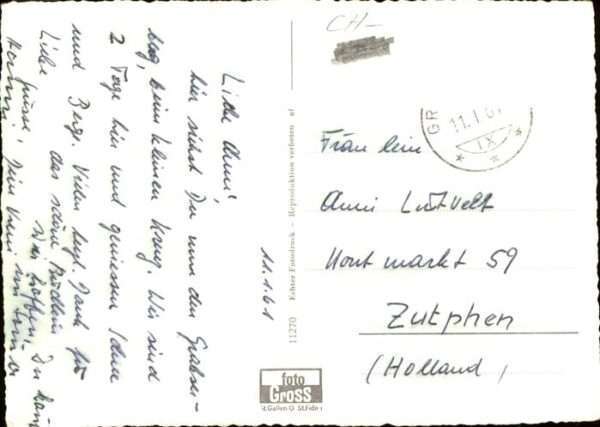 Liebe Anni,
hier siehst Du nun den Grabser-
berg, beim kleinen Haus. Wir sind
2 Tage hier und geniessen Sonne
und Berg. Vielen herzl. Dank für
das schöne Büchlein
Liebe
Grüsse,
Dein
11.1.61
11270 Echter Fotodruck — Reproduktion verboten
foto
Gross
St.Gallen O St.Fiden
CH-
GR
11.1.61
IX
Fräulein
Anni Lütvelt
Hout markt 59
Zutphen
(Holland)